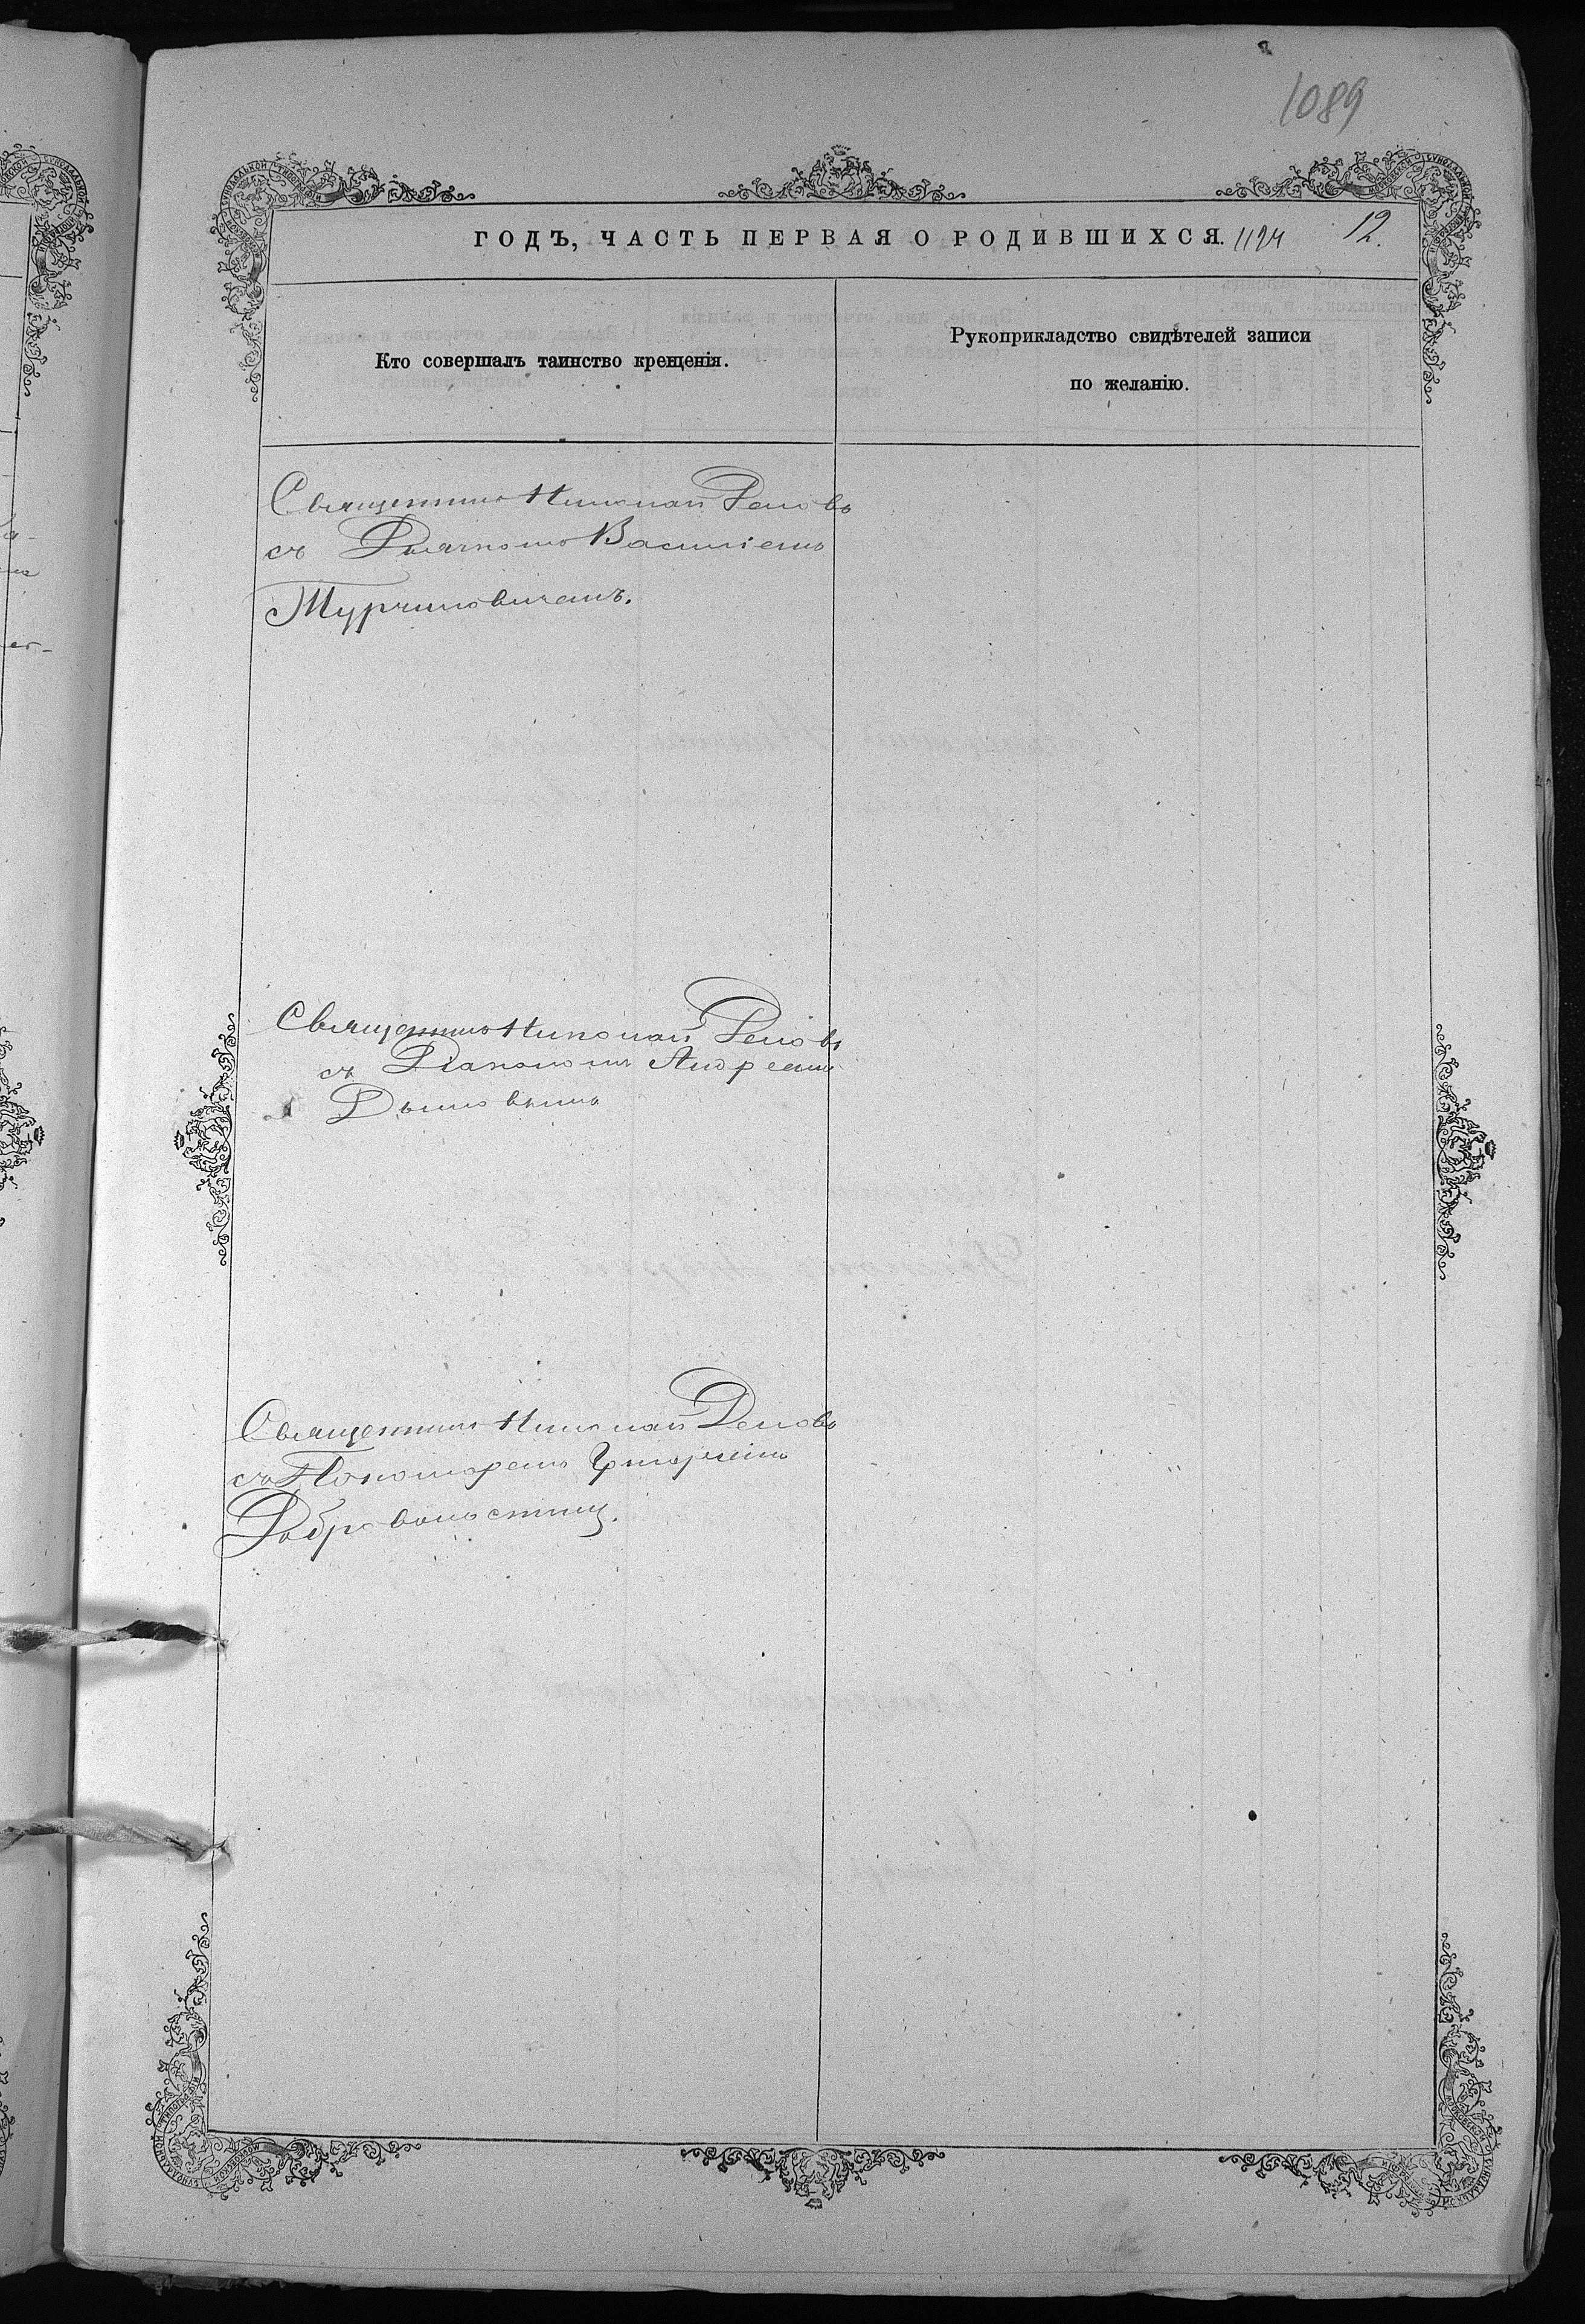 1089
ГОДЪ, ЧАСТЬ ПЕРВАЯ О РОДИВШИХСЯ. 1124 12.
Кто совершалъ таинство крещенія.
Рукоприкладство свидѣтелей записи
по желанію.
Священникъ Николай
съ Василіемъ
Турчиновичемъ.
Священникъ Николай
съ Діакономъ Андреемъ
Священникъ Николай
съ Пономаремъ Григоріемъ